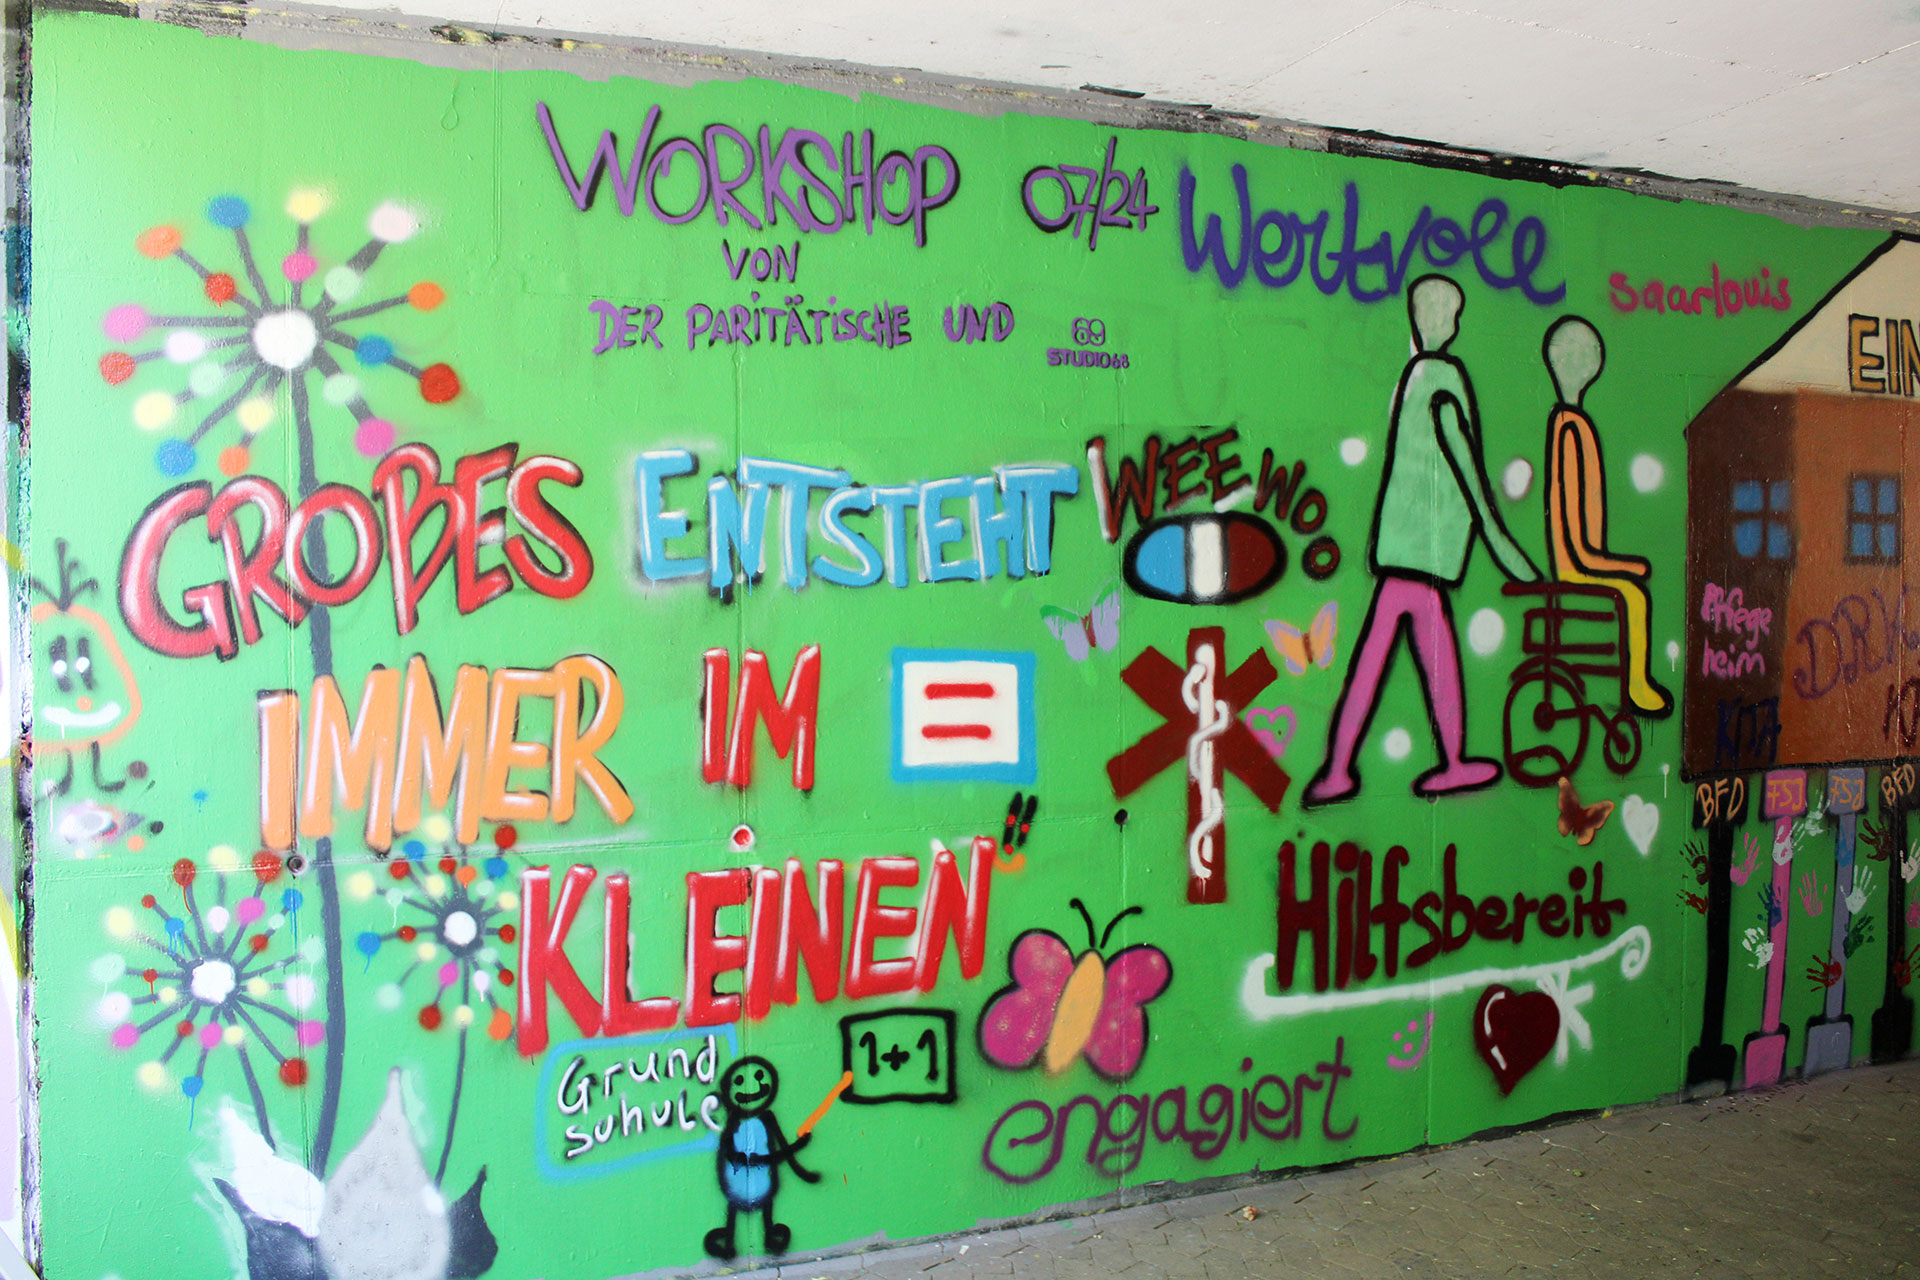 WORKSHOP 07/24
VON
DER PARITÄTISCHE UND
69
STUDIO68
Wertvoll
Saarlouis
EIN
GROßES ENTSTEHT
WEEWOO
IMMER IM
=
KLEINEN"
Pflege
heim
DRK
KITA
BFD
FSJ
FSJ
BFD
Hilfsbereit
Grund
schule
1+1
engagiert